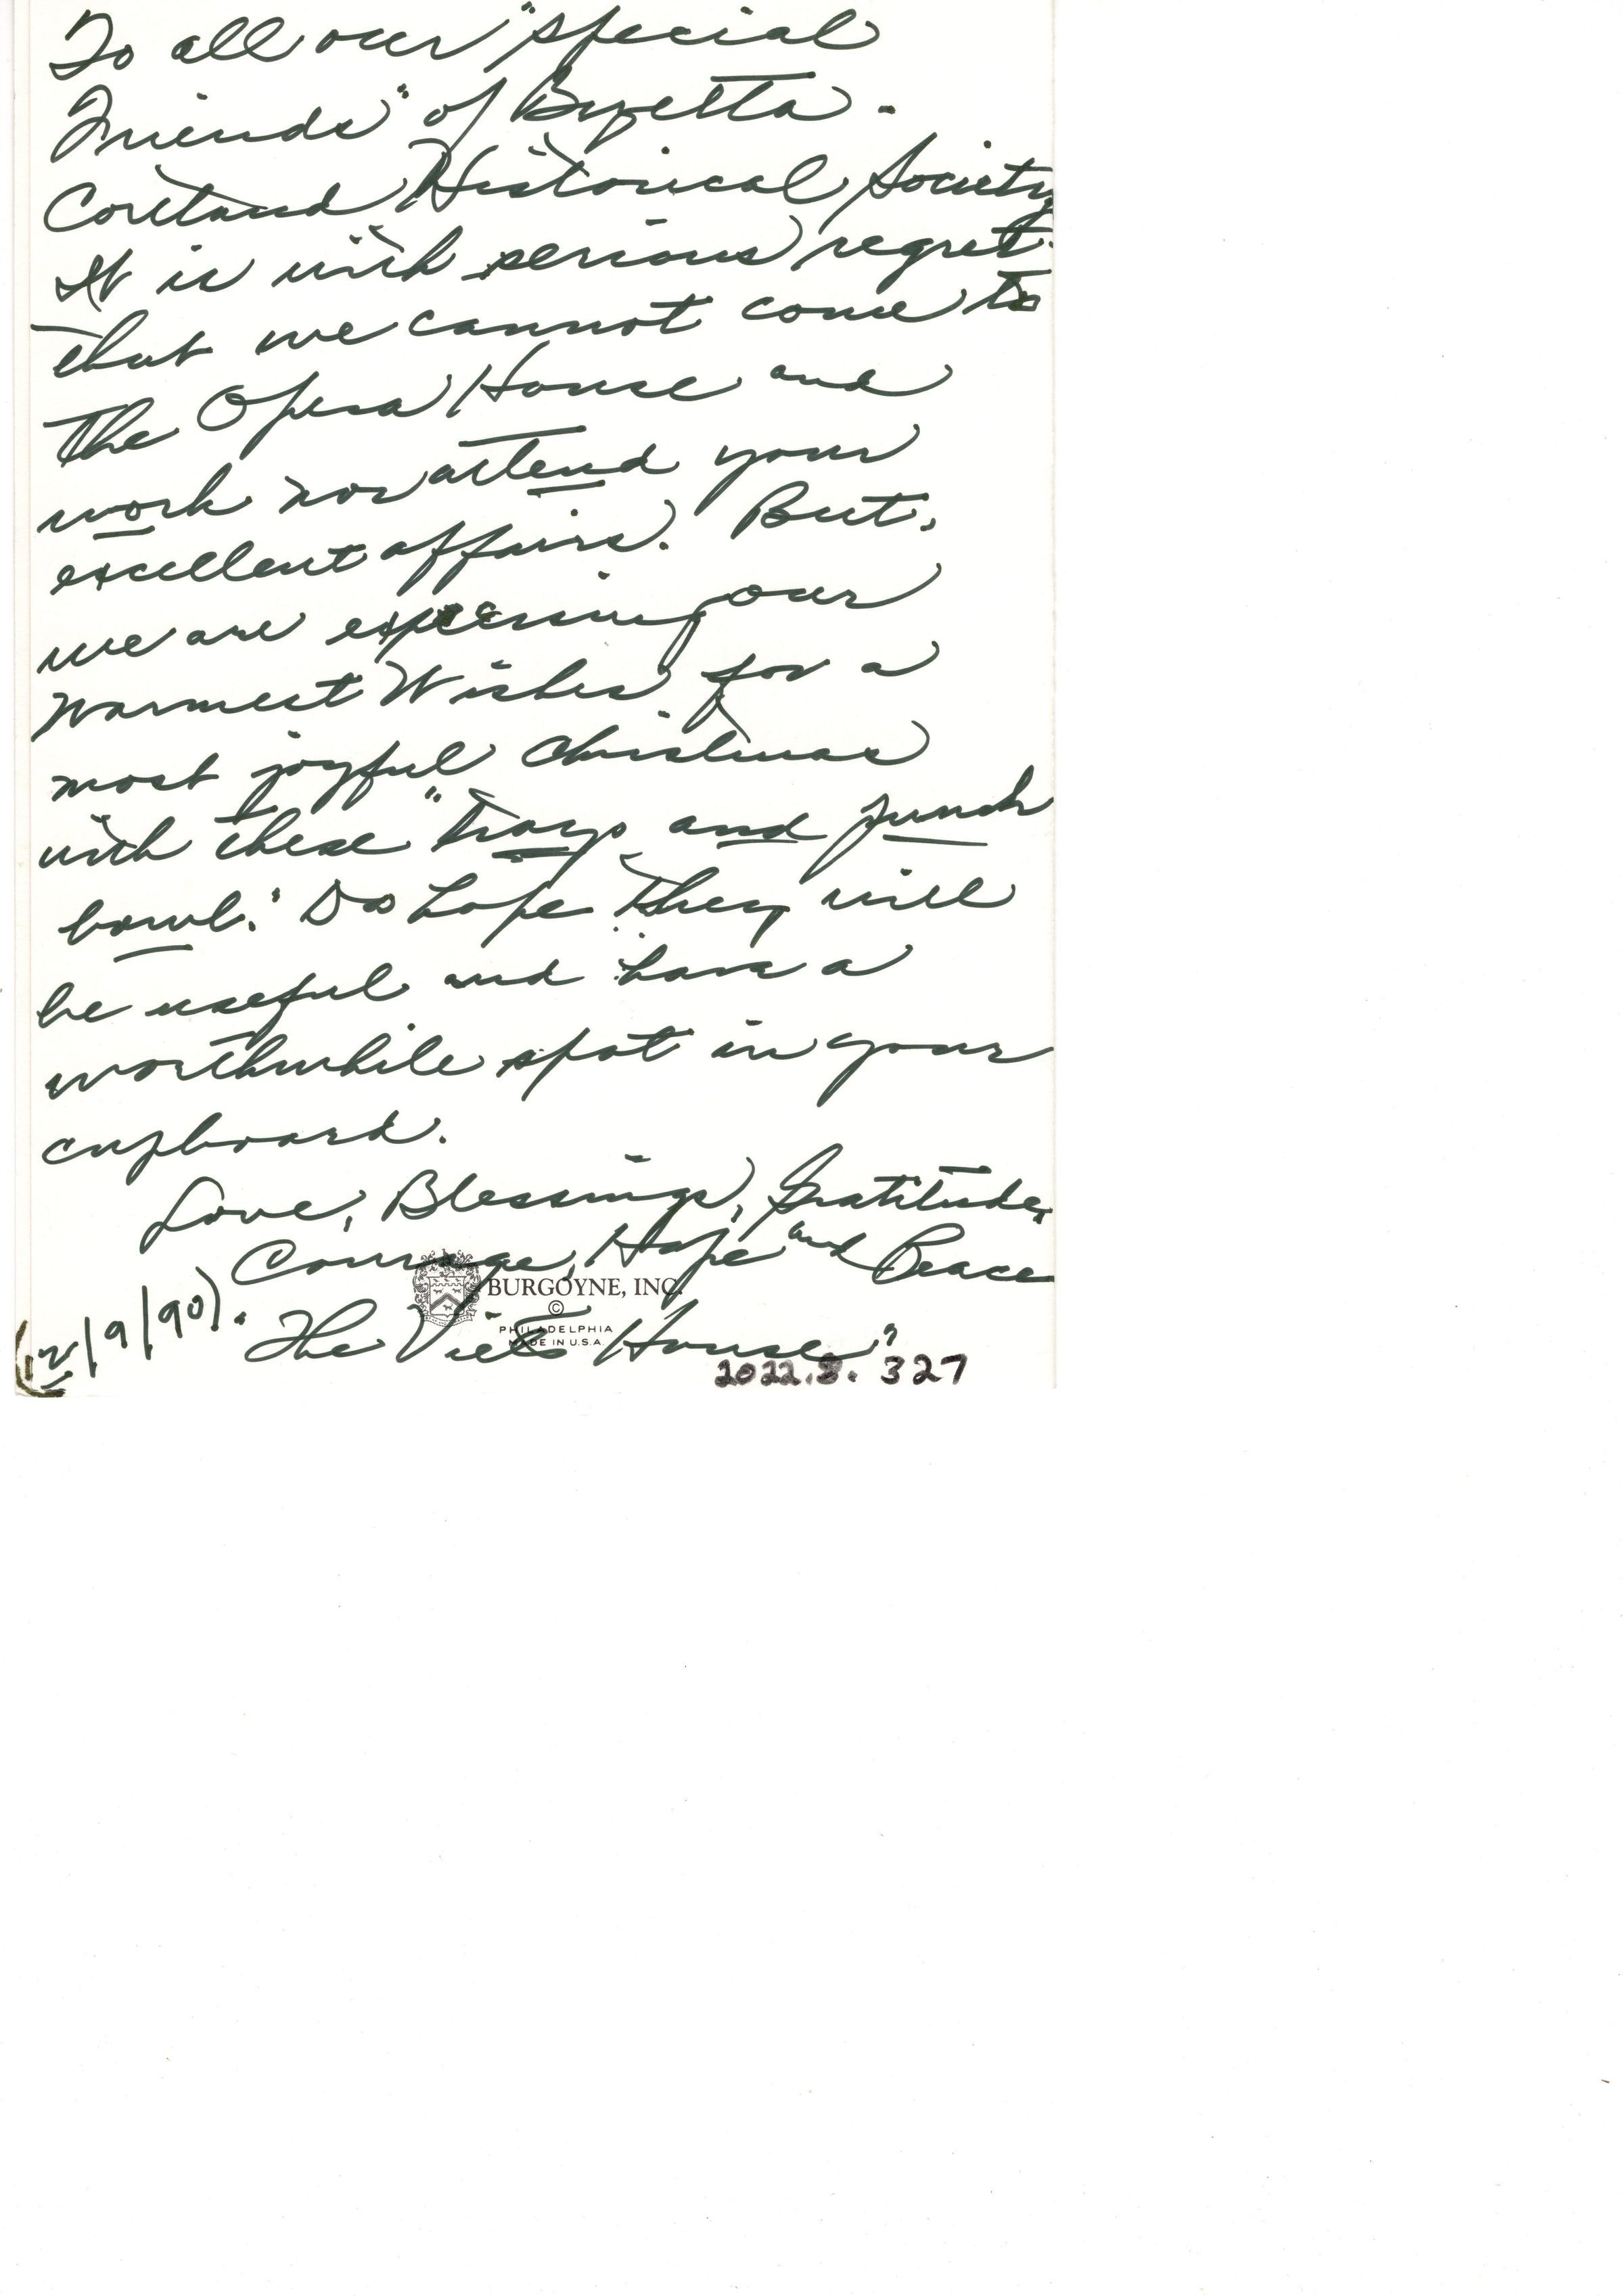 To all our "special
Friends" of Bazetta -
Cortland Historical Society
It is with serious regret
that we cannot come to
the Opera House and
work nor attend your
excellent affairs. But,
we are expressing our
Warmest Wishes for a
most joyful Christmas
with these "trays and punch
bowl." Do hope they will
be useful and have a
worthwhile spot in your
cupboard.
Love, Blessings, Gratitude,
Courage, Hope and Peace
BURGOYNE, INC.
©
PHILADELPHIA
MADE IN U.S.A.
(12/9/90). The Viets House"
2022.8.327